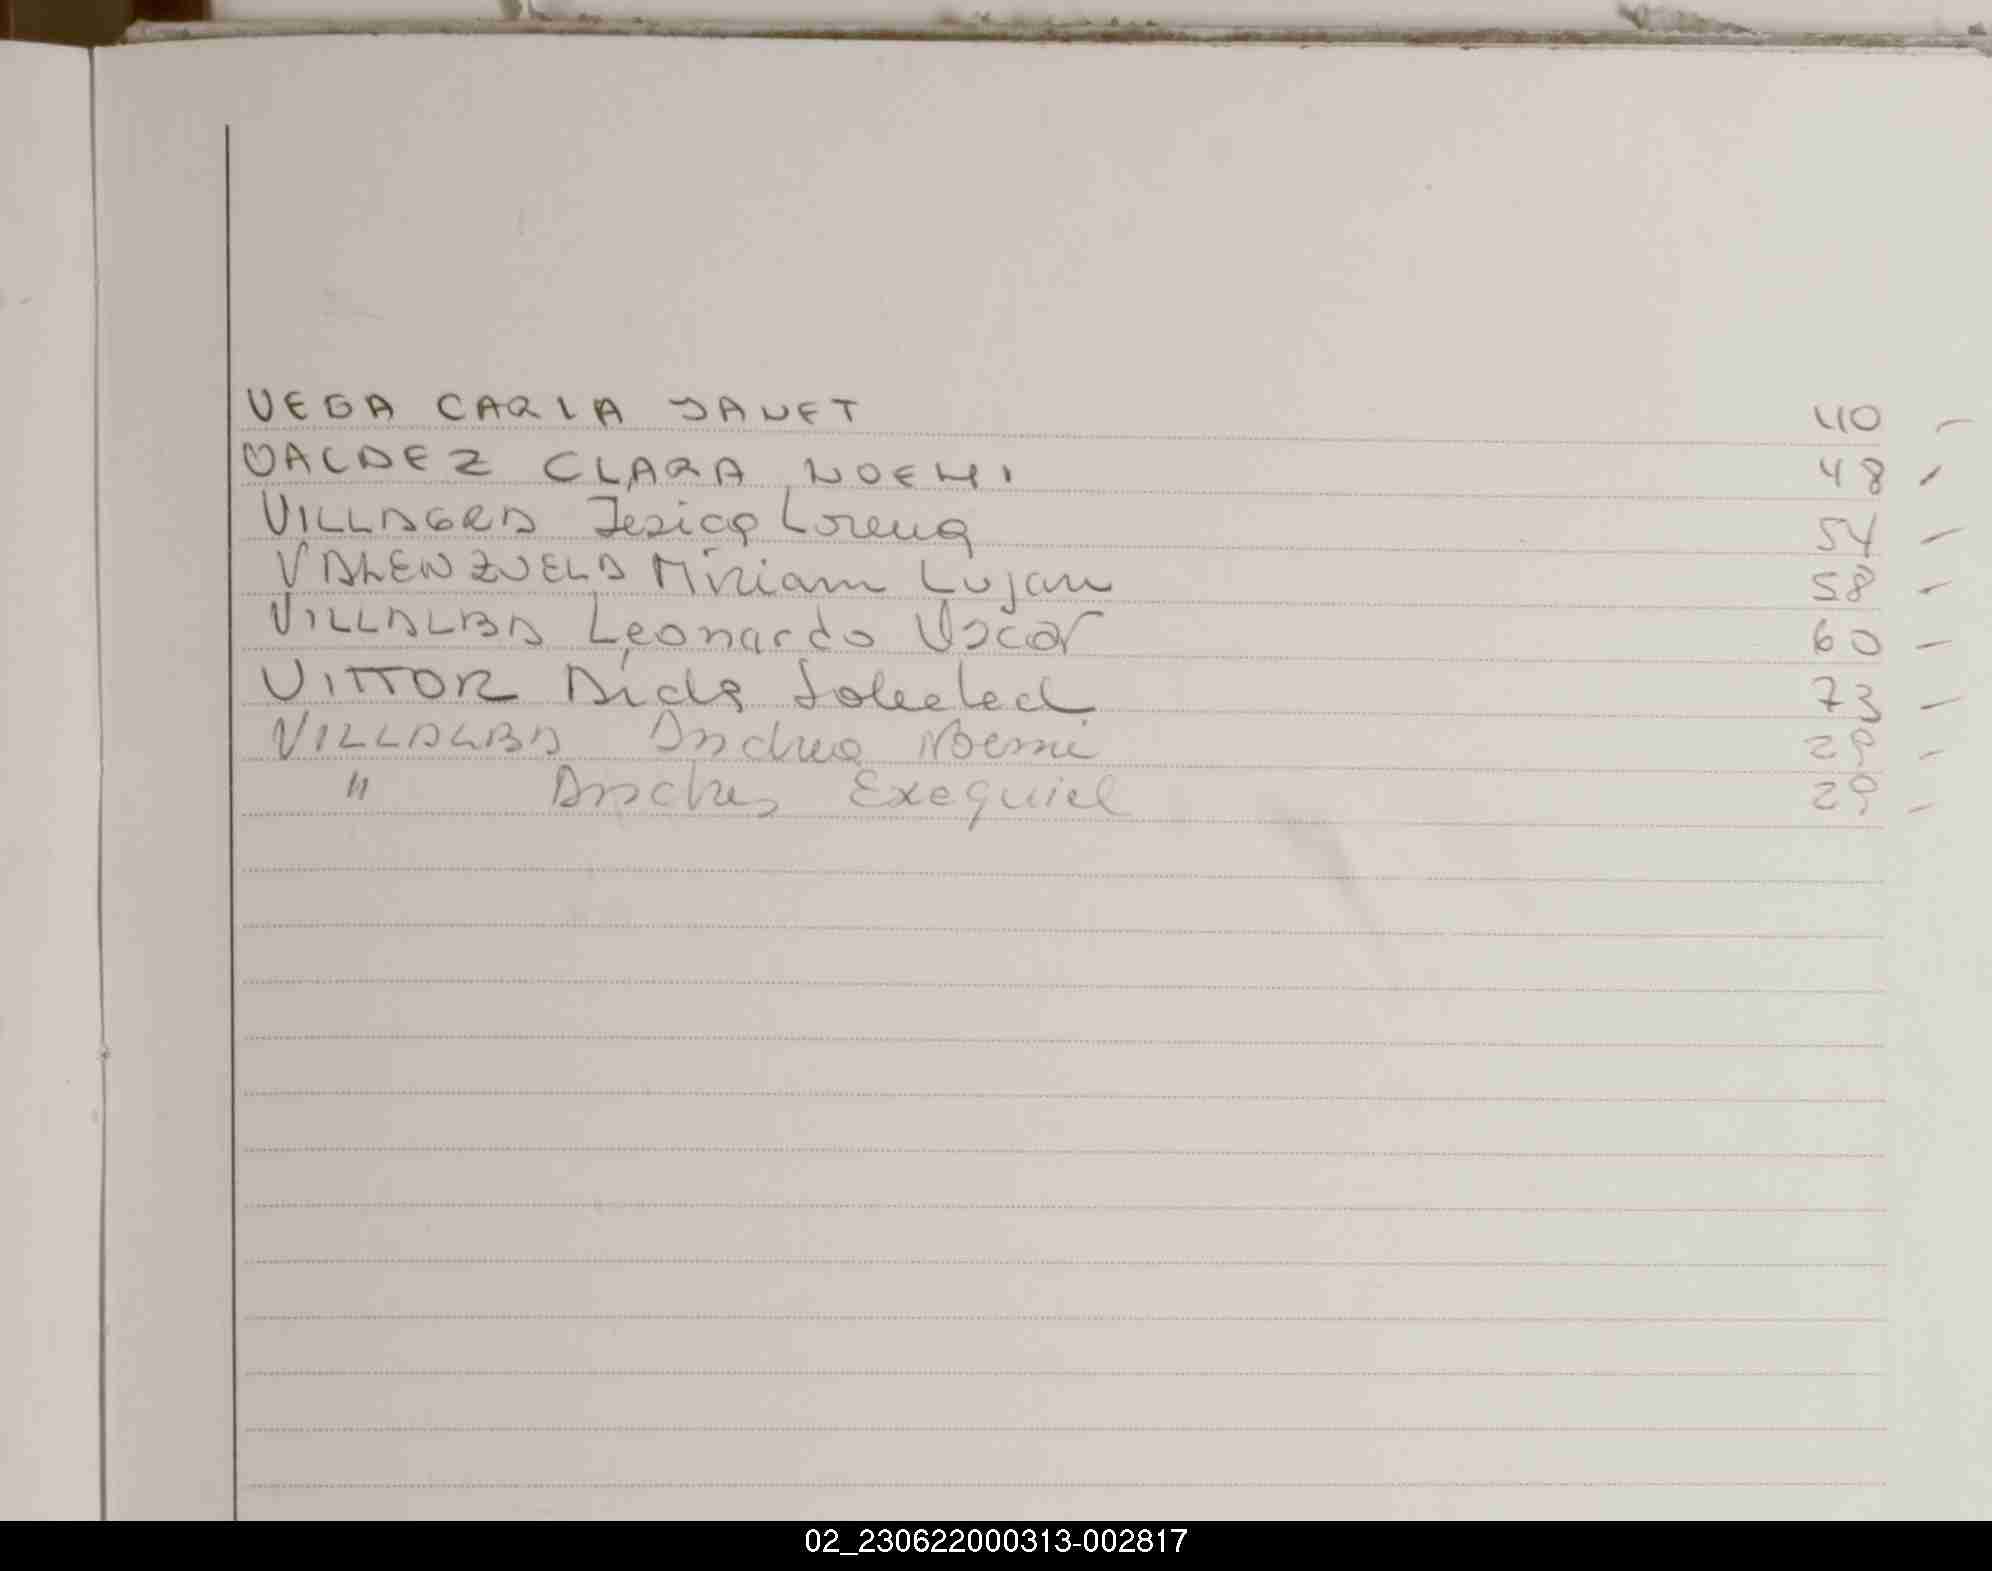 VEGA CARLA JANET 40 -
VALDEZ CLARA NOEMI 48 -
VILLAGRA Jesica Lorena 54 -
VALENZUELA Miriam Lujan 58 -
VILLALBA Leonardo Oscar 60 -
VITTOR Aida Soledad 73 -
VILLALBA Andrea Noemi 29 -
" Andres Exequiel 29 -
02_230622000313-002817